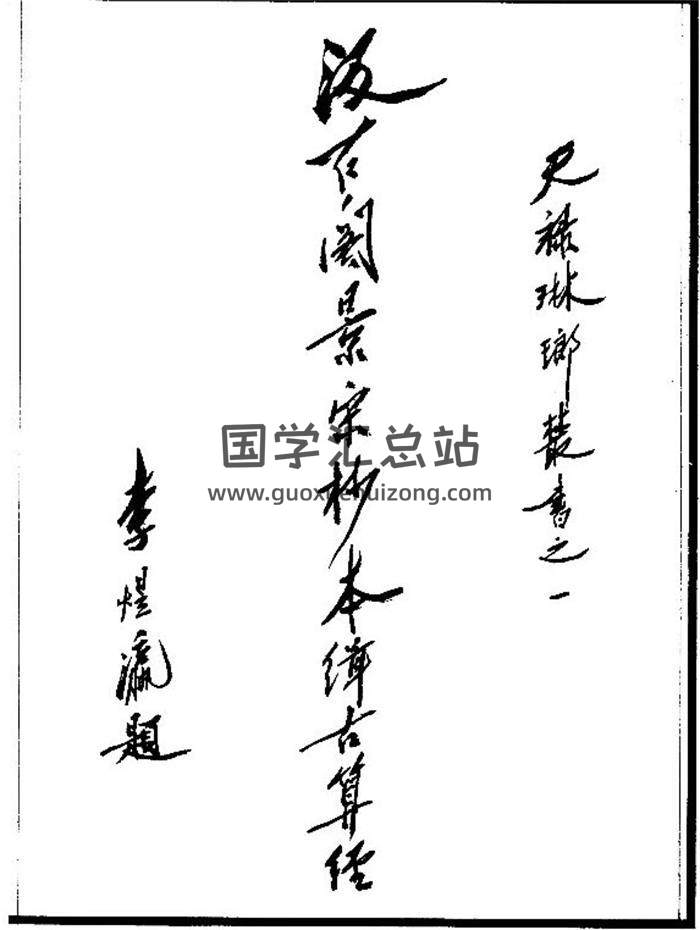 天祿琳瑯叢書之一
汲古閣景宋抄本緝古算經
李煜瀛題
国学汇总站
www.guoxuehuizong.com